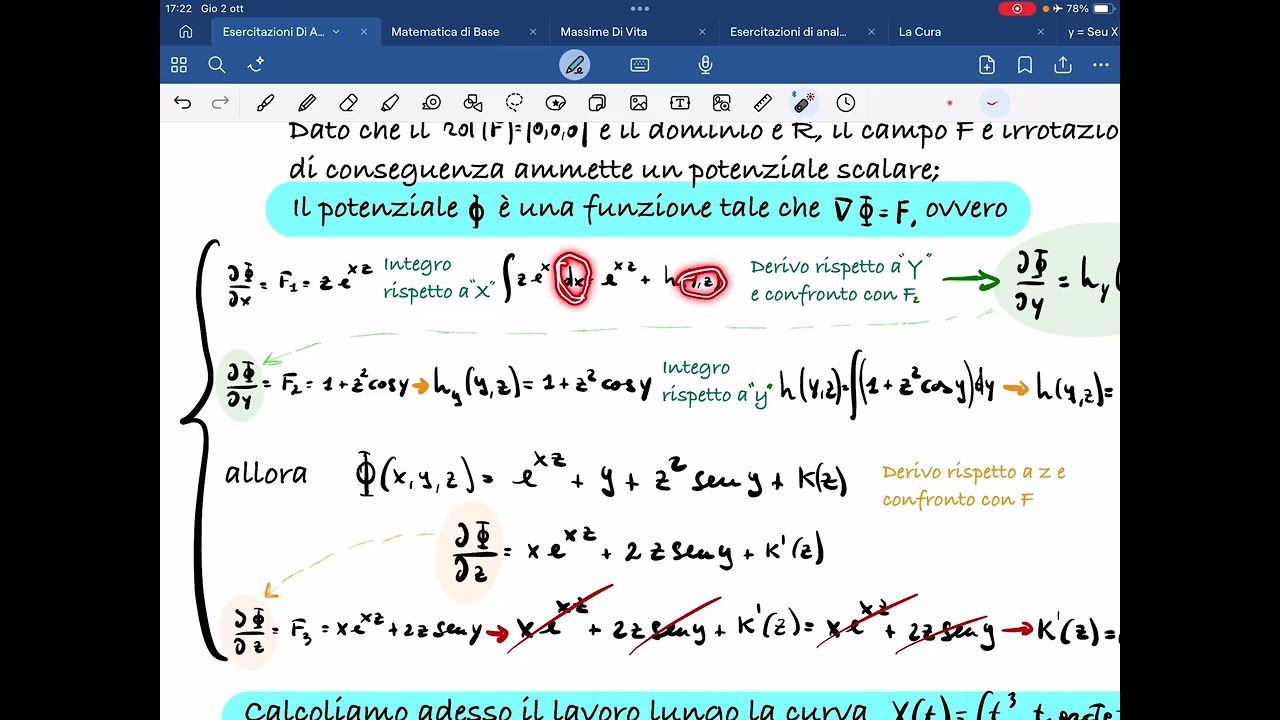 17:22 Gio 2 ott 78%
Esercitazioni Di A... Matematica di Base Massime Di Vita Esercitazioni di anal... La Cura y = Seu X
Dato che il rot(F)=(0,0,0) e il dominio è R, il campo F è irrotazio
di conseguenza ammette un potenziale scalare;
Il potenziale Φ è una funzione tale che ∇Φ=F, ovvero
∂Φ/∂x = F₁ = z e^xz Integro rispetto a "X" ∫ z e^x dx e^xz + h y,z) Derivo rispetto a "Y" e confronto con F₂ → ∂Φ/∂y = h_y(
∂Φ/∂y = F₂ = 1+z²cosy → h_y(y,z) = 1+z²cosy Integro rispetto a "y" h(y,z)=∫(1+z²cosy)dy → h(y,z)=
allora Φ(x,y,z)= e^xz + y + z² sen y + K(z) Derivo rispetto a z e confronto con F
∂Φ/∂z = x e^xz + 2z sen y + K'(z)
∂Φ/∂z = F₃ = xe^xz + 2z sen y → xe^xz + 2z sen y + K'(z) = xe^xz + 2z sen y → K'(z)=
Calcoliamo adesso il lavoro lungo la curva X(t)=(t³